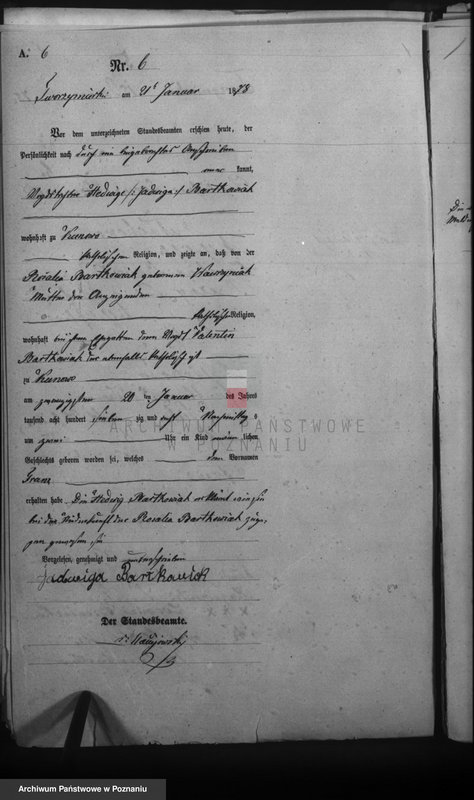 A. 6
Nr. 6
am 21t Januar 1878
Vor dem unterzeichneten Standesbeamten erschien heute, der
Persönlichkeit nach durch ein
kannt,
Hedwige /: Jadwiga :/ Bartkowiak
wohnhaft zu Kunowo
katholischen Religion, und zeigte an, daß von der
Rosalia Bartkowiak geborenen Wawrzyniak
Mutter der Anzeigenden
katholischer Religion,
wohnhaft bei ihrem Ehegatten dem Vogt Valentin
Bartkowiak der ebenfalls katholisch ist
zu Kunowo
am zwanzigsten 20 ten Januar des Jahres
tausend acht hundert sieben zig und acht Nachmittags
um zwei Uhr ein Kind männlichen
Geschlechts geboren worden sei, welches den Vornamen
Franz
erhalten habe. Die Hedwig Bartkowiak erklärt daß sie
bei der Niederkunft der Rosalia Bartkowiak zuge-
gen gewesen sei
Vorgelesen, genehmigt und unterschrieben
Jadwiga Bartkowiak
Der Standesbeamte.
ARCHIWUM PAŃSTWOWE
W POZNANIU
Archiwum Państwowe w Poznaniu